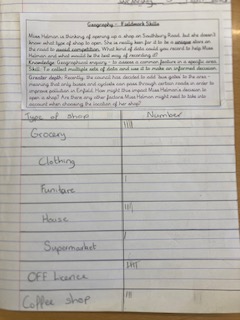 Geography - Fieldwork Skills
Miss Halman is thinking of opening up a shop on Southbury Road, but she doesn't
know what type of shop to open. She is really keen for it to be a unique store on
the road to avoid competition. What kind of data could you record to help Miss
Halman and what would be the best way of recording it?
Knowledge: Geographical enquiry - to assess a common feature in a specific area.
Skill: To collect multiple sets of data and use it to make an informed decision.
Greater depth: Recently, the council has decided to add 'bus gates' to the area -
meaning that only buses and cyclists can pass through certain roads in order to
improve pollution in Enfield. How might this impact Miss Halman's decision to
open a shop? Are there any other factors Miss Halman might need to take into
account when choosing the location of her shop?
Type of shop Number
Grocery
Clothing
Furniture
House
Supermarket
OFF Licence
Coffee shop